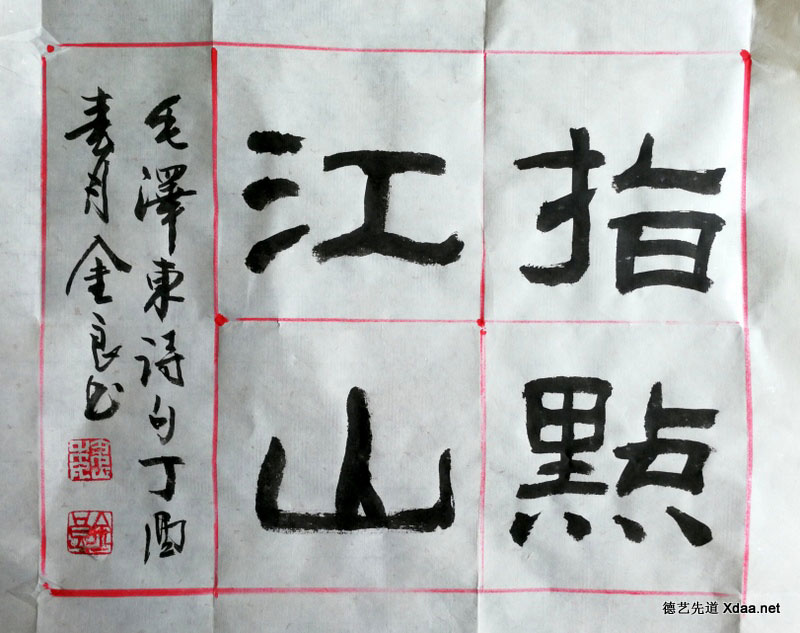 指點
江山
毛澤東詩句丁酉
春月金良书
德艺先道 Xdaa.net